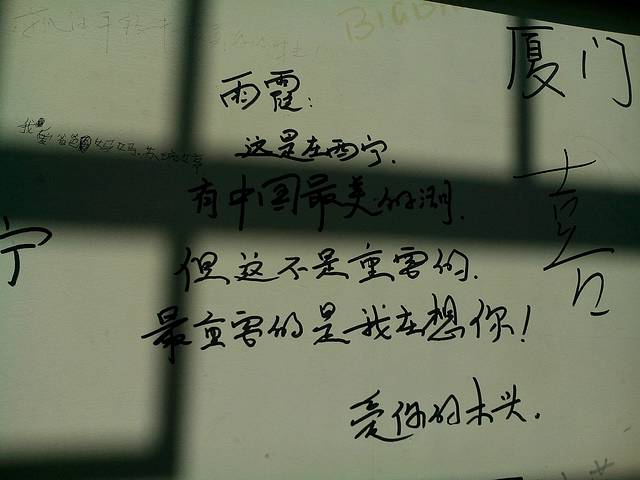 BIGBA
厦门
雨霞:
这是在西宁.
有中国最美的湖.
但这不是重要的.
最重要的是我在想你!
爱你的木头.
宁